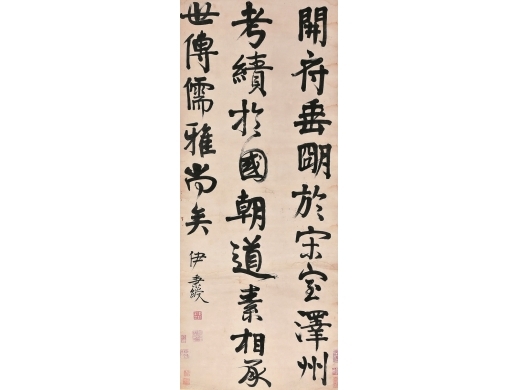 開府垂明於宋室澤州
考績於國朝道素相承
世傳儒雅尚矣
伊秉綬